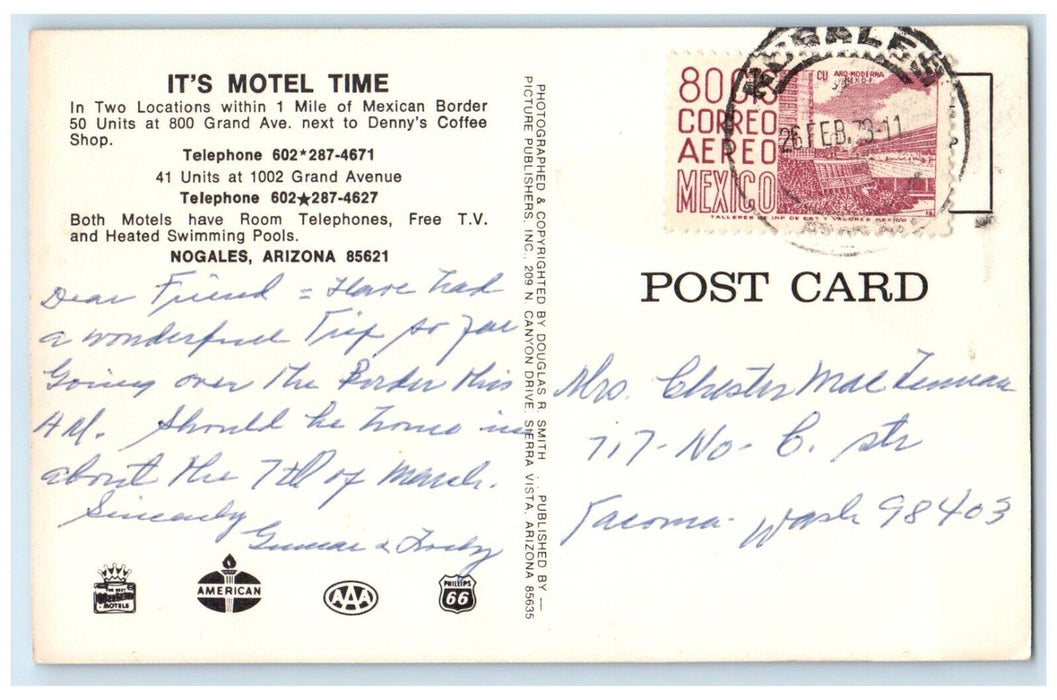 IT'S MOTEL TIME
In Two Locations within 1 Mile of Mexican Border
50 Units at 800 Grand Ave. next to Denny's Coffee
Shop.
Telephone 602★287-4671
41 Units at 1002 Grand Avenue
Telephone 602★287-4627
Both Motels have Room Telephones, Free T.V.
and Heated Swimming Pools.
NOGALES, ARIZONA 85621
Dear Friend = Have had
a wonderful Trip so far
Going over the Border this
AM. Should be home in
about the 7th of March.
Sincerely
Gunnar &
MOTELS
AMERICAN
AAA
PHILLIPS
66
PHOTOGRAPHED & COPYRIGHTED BY DOUGLAS R. SMITH . . PUBLISHED BY —
PICTURE PUBLISHERS, INC., 209 N. CANYON DRIVE, SIERRA VISTA, ARIZONA 85635
80 CTS
CORREO
AEREO
MEXICO
CU ARQ-MODERNA
MEX-D-F-
TALLERES DE IMP DE EST Y VALORES MEXICO
NOGALES
26 FEB. 73-11
POST CARD
Mrs. Chester
717-No- C. str
Tacoma- Wash 98403